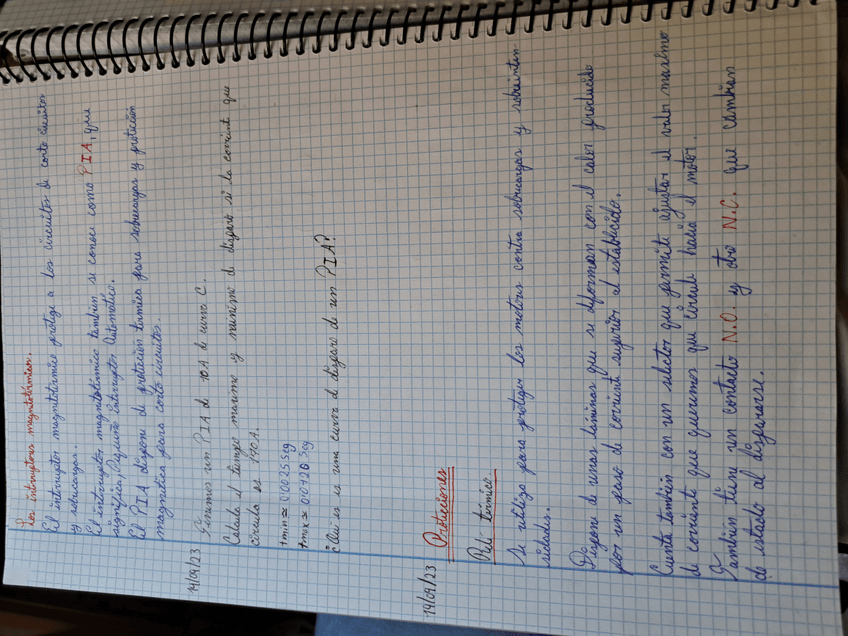 Los interruptores magnetotérmicos.
El interruptor magnetotérmico protege a los circuitos de corto circuitos
y sobrecargas.
El interruptor magnetotérmico tambien se conoce como PIA, que
significa, Pequeño Interruptor Automático.
El PIA dispone de protección termica para sobrecargas y protección
magnetica para corto circuitos.
14/09/23
Tenemos un PIA de 10A de curva C.
Calcula el tiempo maximo y minimo de disparo si la corriente que
circula es 190A.
tmin ≃ 0'0025 Seg
tmx ≃ 0'0120 Seg
¿Que es es una curva de disparo de un PIA?
19/09/23
Protecciones
Relé térmico.
Se utiliza para proteger los motores contra sobrecargas y sobreinten-
sidades.
Dispone de unas láminas que se deforman con el calor producido
por un paso de corriente superior al establecido.
Cuenta también con un selector que permite ajustar el valor maximo
de corriente que queremos que circule hacia el motor.
Tambien tiene un contacto N.O. y otro N.C. que cambian
de estado al dispararse.